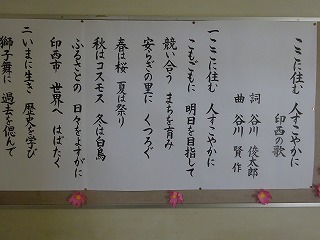 ここに住む 人すこやかに
印西の歌
詞 谷川 俊太郎
曲 谷川 賢作
一 ここに住む 人すこやかに
こもごもに 明日を目指して
競い合う まちを育み
安らぎの里に くつろぐ
春は桜 夏は祭り
秋はコスモス 冬は白鳥
ふるさとの 日々をよすがに
印西市 世界へ はばたく
二 いまに生き 歴史を学び
獅子舞に 過去を偲んで